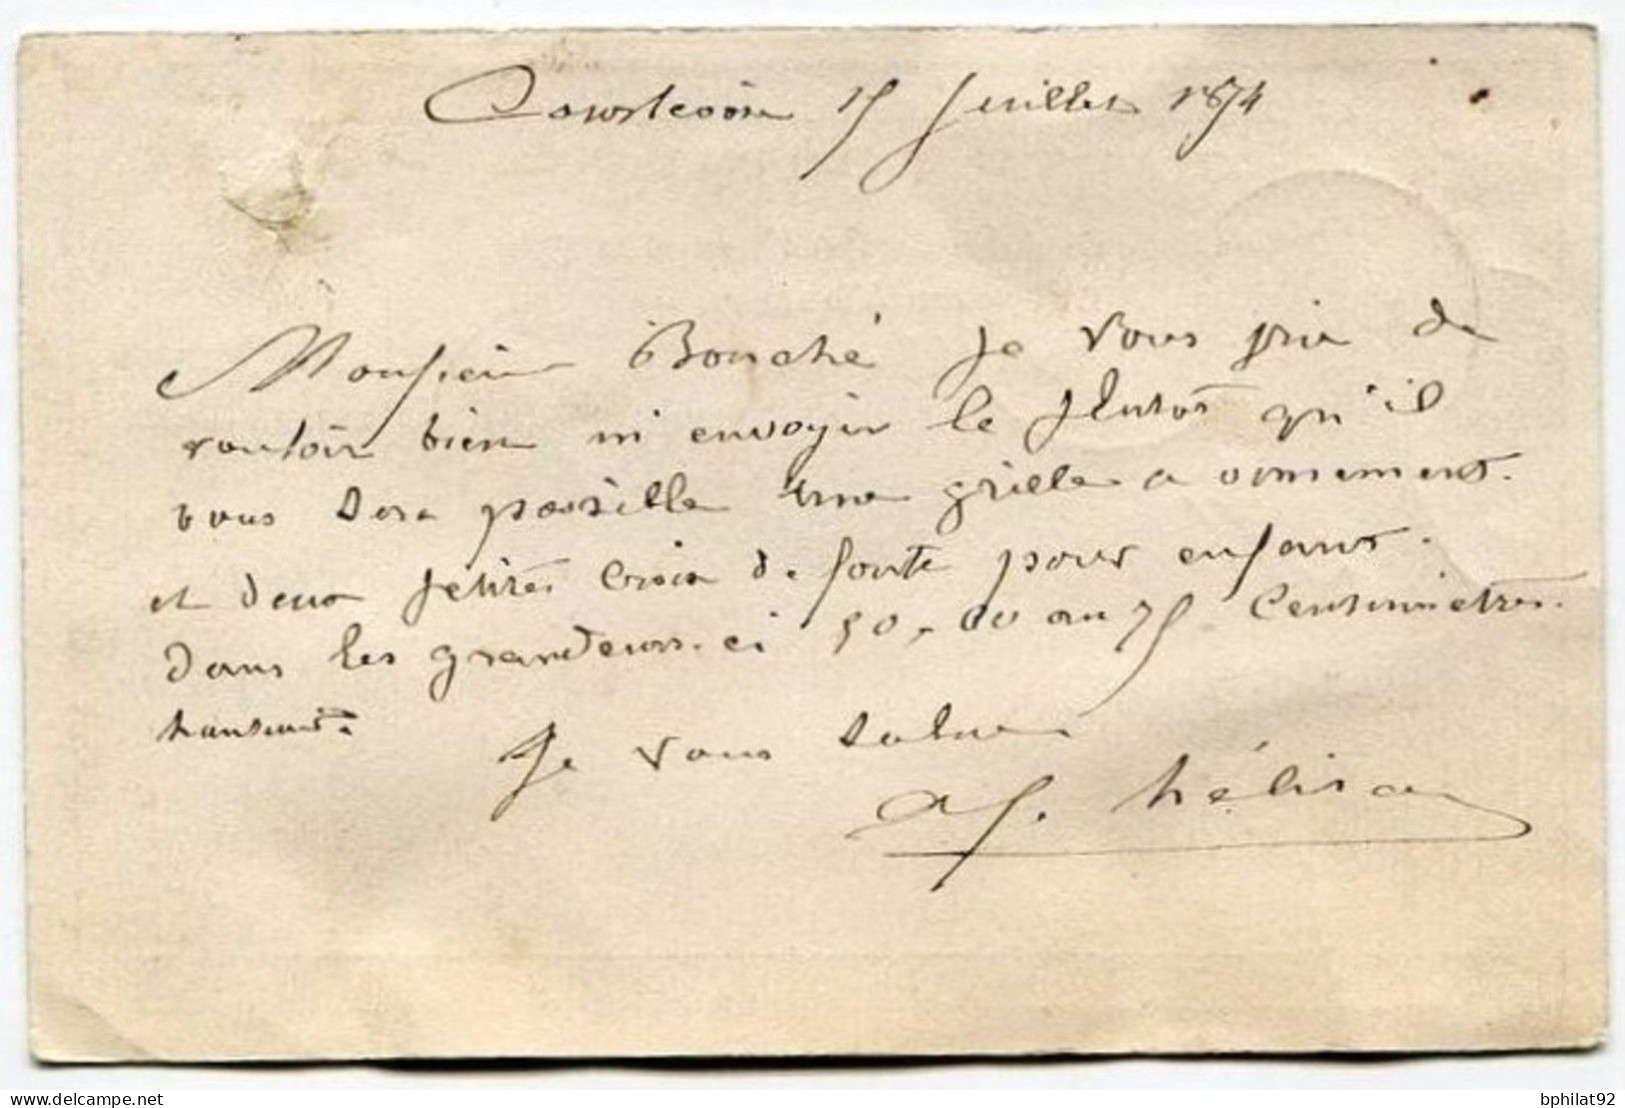 Courtcoin 15 Juillet 1874
Monsieur Bouché je vous prie de
vouloir bien m'envoyer le plutot qu'il
vous sera possible une grille a ornement.
et deux petites Croix de fonte pour enfant.
dans les grandeurs. ci 50, 60 au 75 Centimètres.
hauteur.
Je vous salue
hélira
bphilat92